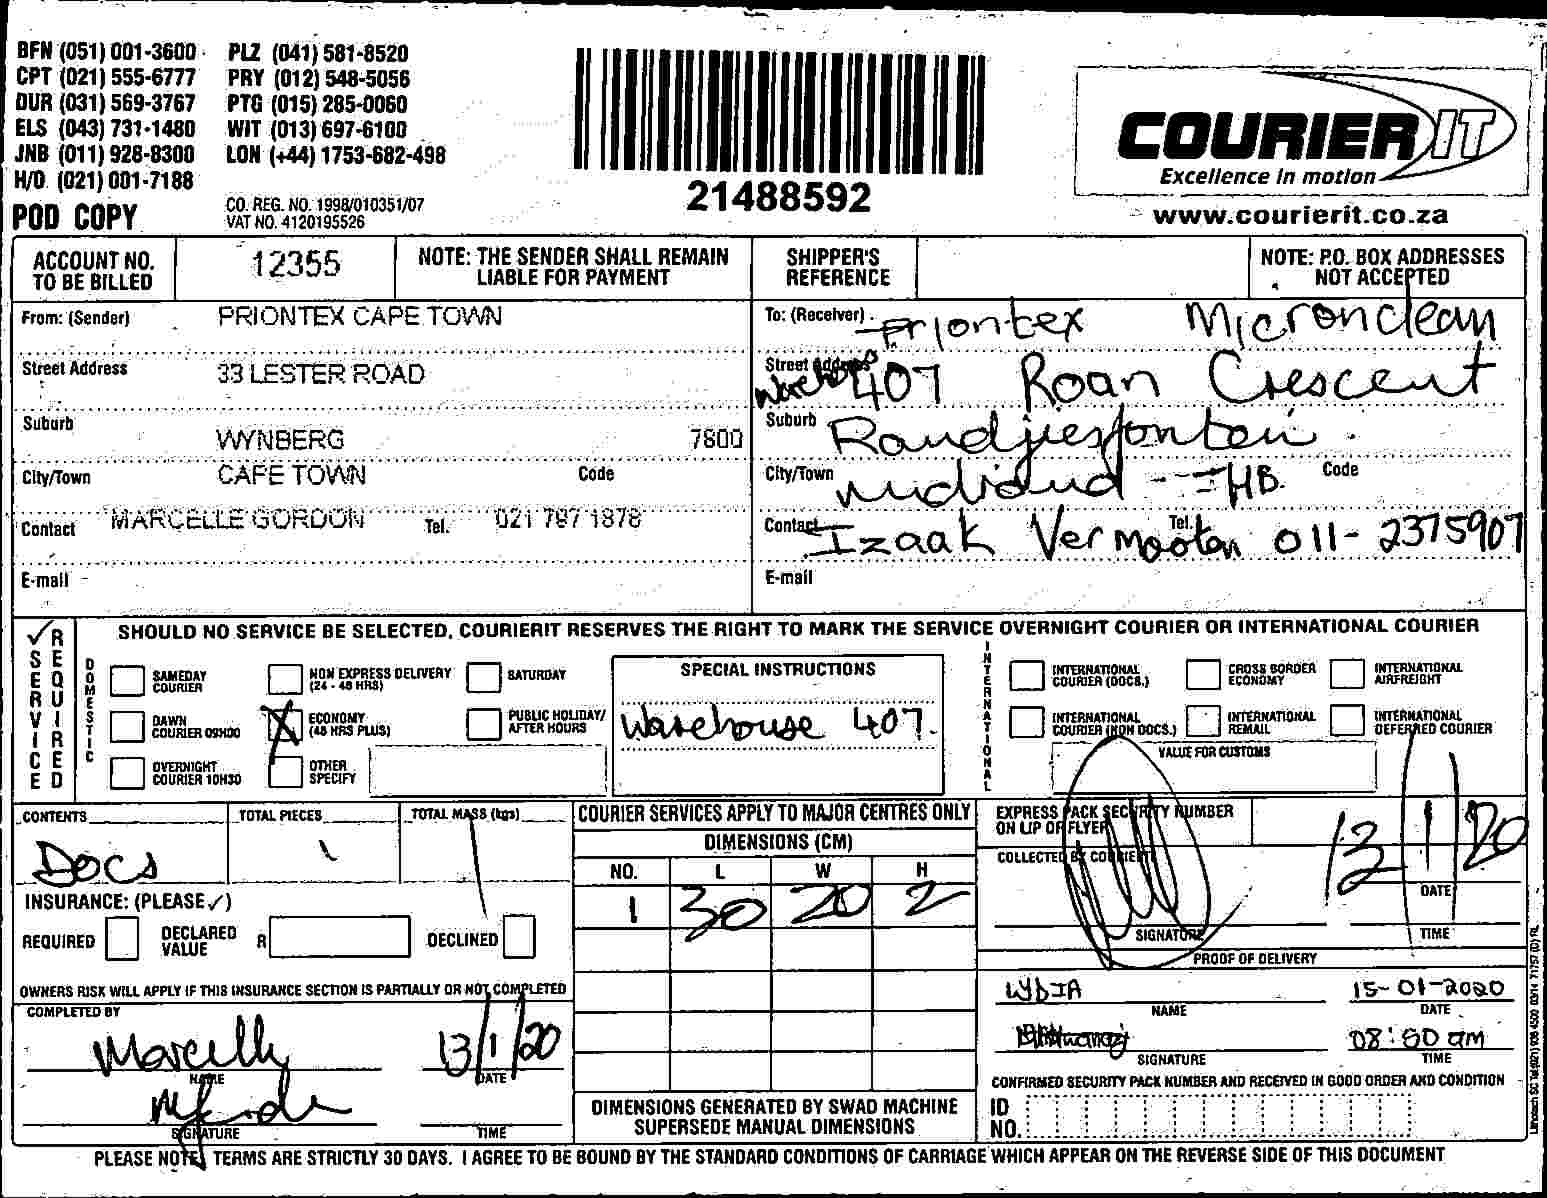 BFN (051) 001-3600 PLZ (041) 581-8520
CPT (021) 555-6777 PRY (012) 548-5056
DUR (031) 569-3767 PTG (015) 285-0060
ELS (043) 731-1480 WIT (013) 697-6100
JNB (011) 928-8300 LON (+44) 1753-682-498
H/O (021) 001-7188
POD COPY
CO. REG. NO. 1998/010351/07
VAT NO. 4120195526
21488592
COURIER IT
Excellence in motion
www.courierit.co.za
ACCOUNT NO. TO BE BILLED
12355
NOTE: THE SENDER SHALL REMAIN LIABLE FOR PAYMENT
SHIPPER'S REFERENCE
NOTE: P.O. BOX ADDRESSES NOT ACCEPTED
From: (Sender) PRIONTEX CAPE TOWN
Street Address 33 LESTER ROAD
Suburb WYNBERG 7800
City/Town CAPE TOWN Code
Contact MARCELLE GORDON Tel. 021 797 1878
E-mail
To: (Receiver) Priontex Micronclean
Street Address 407 Roan Crescent
Suburb Randjiesfontein
City/Town Midrand - JHB. Code
Contact Izaak Vermooten Tel. 011-2375907
E-mail
SERVICE REQUIRED
SHOULD NO SERVICE BE SELECTED, COURIERIT RESERVES THE RIGHT TO MARK THE SERVICE OVERNIGHT COURIER OR INTERNATIONAL COURIER
DOMESTIC
SAMEDAY COURIER
NON EXPRESS DELIVERY (24 - 48 HRS)
SATURDAY
DAWN COURIER 09H00
ECONOMY (48 HRS PLUS)
PUBLIC HOLIDAY/ AFTER HOURS
OVERNIGHT COURIER 10H30
OTHER SPECIFY
SPECIAL INSTRUCTIONS
Warehouse 407.
INTERNATIONAL
INTERNATIONAL COURIER (DOCS.)
CROSS BORDER ECONOMY
INTERNATIONAL AIRFREIGHT
INTERNATIONAL COURIER (NON DOCS.)
INTERNATIONAL REMAIL
INTERNATIONAL DEFERRED COURIER
VALUE FOR CUSTOMS
CONTENTS TOTAL PIECES TOTAL MASS (kgs)
Docs 1 1
INSURANCE: (PLEASE ✓)
REQUIRED DECLARED VALUE R DECLINED
OWNERS RISK WILL APPLY IF THIS INSURANCE SECTION IS PARTIALLY OR NOT COMPLETED
COMPLETED BY
13/1/20
NAME DATE
SIGNATURE TIME
COURIER SERVICES APPLY TO MAJOR CENTRES ONLY
DIMENSIONS (CM)
NO. L W H
1 30 20 2
DIMENSIONS GENERATED BY SWAD MACHINE SUPERSEDE MANUAL DIMENSIONS
EXPRESS PACK SECURITY NUMBER ON LIP OF FLYER
COLLECTED BY COURIERIT
13/1/20
DATE
SIGNATURE TIME
PROOF OF DELIVERY
LYDIA 15-01-2020
NAME DATE
SIGNATURE TIME
CONFIRMED SECURITY PACK NUMBER AND RECEIVED IN GOOD ORDER AND CONDITION
ID NO.
PLEASE NOTE, TERMS ARE STRICTLY 30 DAYS. I AGREE TO BE BOUND BY THE STANDARD CONDITIONS OF CARRIAGE WHICH APPEAR ON THE REVERSE SIDE OF THIS DOCUMENT